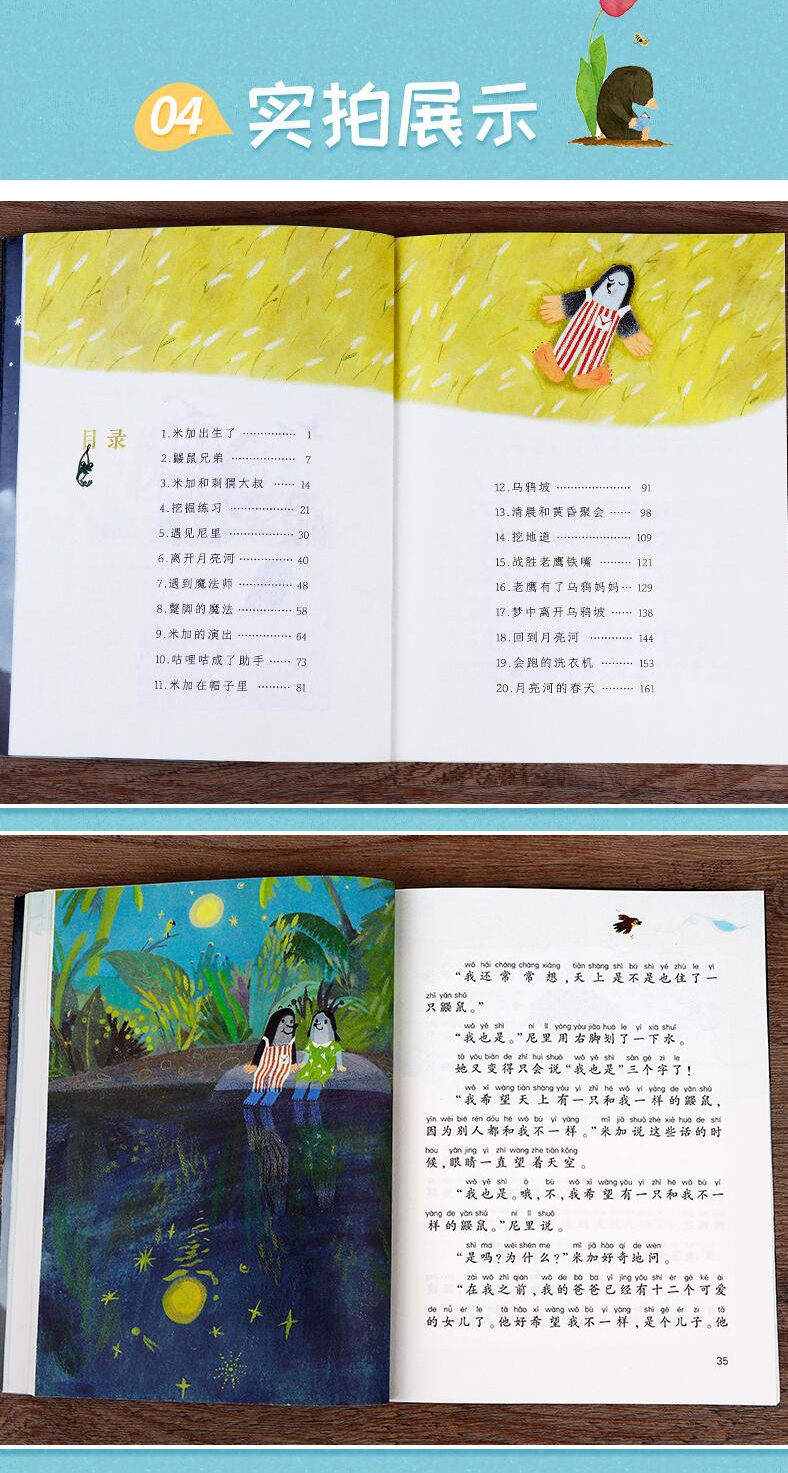 04 实拍展示
目录
1.米加出生了 …………… 1
2.鼹鼠兄弟 ……………… 7
3.米加和刺猬大叔 …… 14
4.挖掘练习 ……………… 21
5.遇见尼里 ……………… 30
6.离开月亮河 …………… 40
7.遇到魔法师 …………… 48
8.蹩脚的魔法 …………… 58
9.米加的演出 …………… 64
10.咕哩咕成了助手 …… 73
11.米加在帽子里 ……… 81
12.乌鸦坡 ………………… 91
13.清晨和黄昏聚会 …… 98
14.挖地道 ………………… 109
15.战胜老鹰铁嘴 ……… 121
16.老鹰有了乌鸦妈妈… 129
17.梦中离开乌鸦坡 …… 138
18.回到月亮河 ………… 144
19.会跑的洗衣机 ……… 153
20.月亮河的春天 ……… 161
wǒ hái cháng cháng xiǎng tiān shàng shì bú shì yě zhù le yì
“我还常常想,天上是不是也住了一
zhī yǎn shǔ
只鼹鼠。”
wǒ yě shì ní lǐ yòng yòu jiǎo huá le yí xià shuǐ
“我也是。”尼里用右脚划了一下水。
tā yòu biàn de zhǐ huì shuō wǒ yě shì sān gè zì le
她又变得只会说“我也是”三个字了!
wǒ xī wàng tiān shàng yǒu yì zhī hé wǒ yí yàng de yǎn shǔ
“我希望天上有一只和我一样的鼹鼠,
yīn wèi bié rén dōu hé wǒ bù yí yàng mǐ jiā shuō zhè xiē huà de shí
因为别人都和我不一样。”米加说这些话的时
hou yǎn jing yì zhí wàng zhe tiān kōng
候,眼睛一直望着天空。
wǒ yě shì ò bù wǒ xī wàng yǒu yì zhī hé wǒ bù yí
“我也是。哦,不,我希望有一只和我不一
yàng de yǎn shǔ ní lǐ shuō
样的鼹鼠。”尼里说。
shì ma wèi shén me mǐ jiā hào qí de wèn
“是吗?为什么?”米加好奇地问。
zài wǒ zhī qián wǒ de bà ba yǐ jīng yǒu shí èr gè kě ài
“在我之前,我的爸爸已经有十二个可爱
de nǚ ér le tā hǎo xī wàng wǒ bù yí yàng shì gè ér zi tā
的女儿了。他好希望我不一样,是个儿子。他
35